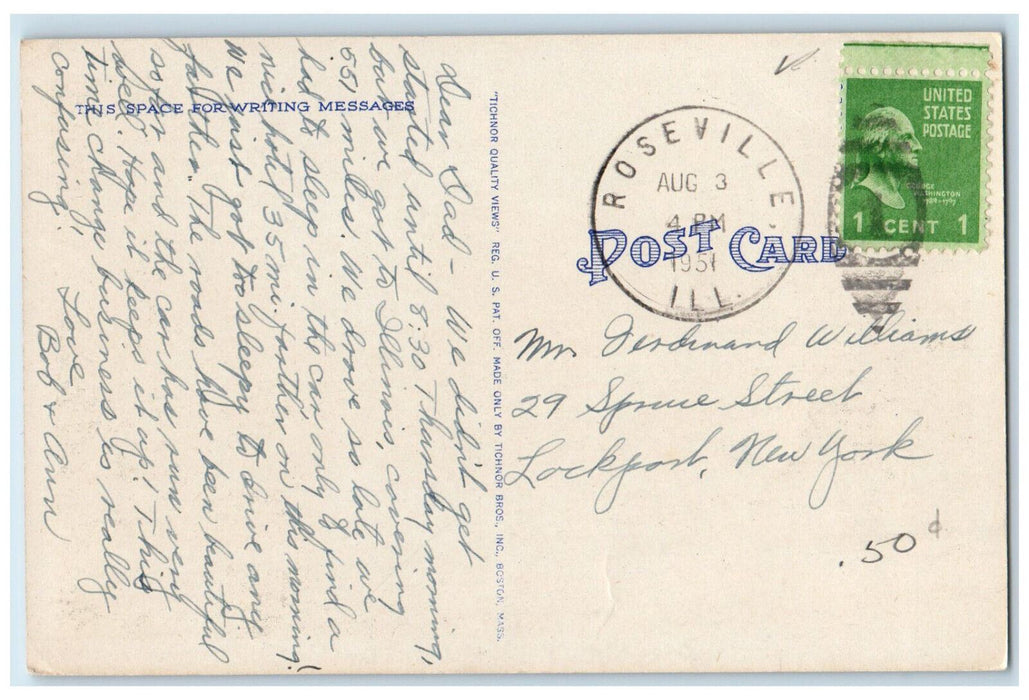 THIS SPACE FOR WRITING MESSAGES
Dear Dad - We didn't get
started until 8:30 Thursday morning,
but we've got to Illinois, covering
551 miles. We drove so late we
had to sleep in the car only to find a
nice hotel 35 mi. further on this morning!
We just got too sleepy to drive any
farther. The roads have been beautiful
so far and the car has run very
well. Hope it keeps it up! This
time change business is really
confusing.
Love
Bob & Ann
"TICHNOR QUALITY VIEWS" REG. U. S. PAT. OFF. MADE ONLY BY TICHNOR BROS., INC., BOSTON, MASS.
ROSEVILLE
AUG 3
4 PM
1951
ILL.
POST CARD
UNITED
STATES
POSTAGE
GEORGE
WASHINGTON
1789-1797
1 CENT 1
Mr. Ferdinand Williams
29 Spruce Street
Lockport, New York
.50